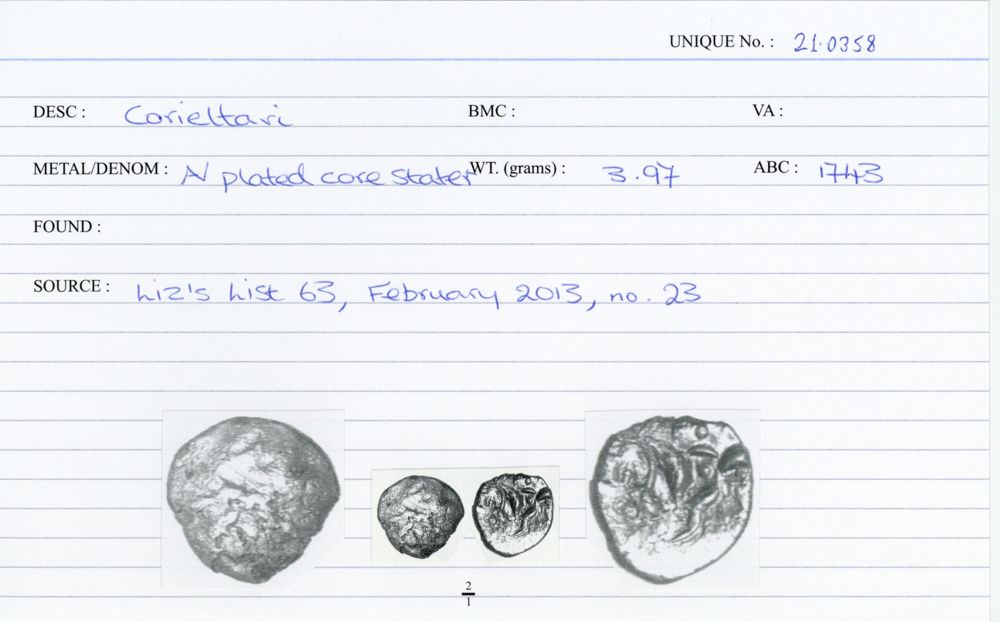 UNIQUE No. : 21.0358
DESC : Corieltavi BMC : VA :
METAL/DENOM : AV plated core stater WT. (grams) : 3.97 ABC : 1743
FOUND :
SOURCE : Liz's List 63, February 2013, no. 23
2
1